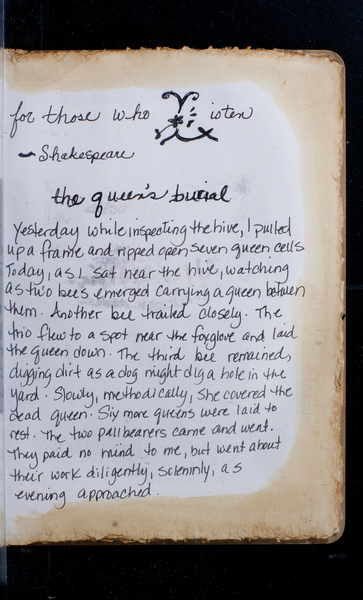 for those who Listen
- Shakespeare
the queen's burial
Yesterday while inspecting the hive, I pulled
up a frame and ripped open seven queen cells
Today, as I sat near the hive, watching
as two bees emerged carrying a queen between
them. Another bee trailed closely. The
trio flew to a spot near the foxglove and laid
the queen down. The third bee remained,
digging dirt as a dog might dig a hole in the
yard. Slowly, methodically, she covered the
dead queen. Six more queens were laid to
rest. The two pallbearers came and went.
They paid no mind to me, but went about
their work diligently, solemnly, as
evening approached.